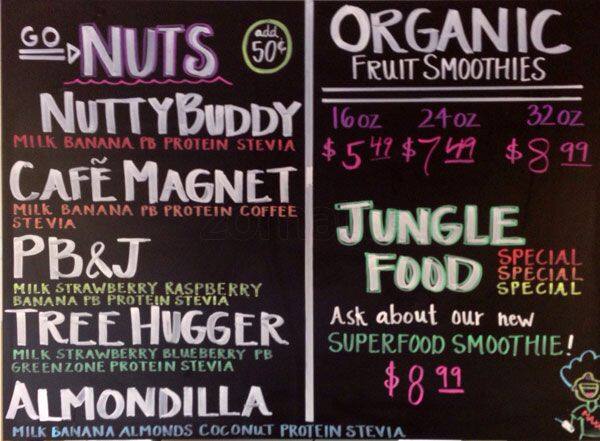 GO NUTS
add 50¢
NUTTY BUDDY
MILK BANANA PB PROTEIN STEVIA
CAFẼ MAGNET
MILK BANANA PB PROTEIN COFFEE
STEVIA
PB&J
MILK STRAWBERRY RASPBERRY
BANANA PB PROTEIN STEVIA
TREE HUGGER
MILK STRAWBERRY BLUEBERRY PB
GREENZONE PROTEIN STEVIA
ALMONDILLA
MILK BANANA ALMONDS COCONUT PROTEIN STEVIA
ORGANIC
FRUIT SMOOTHIES
16oz 24oz 32oz
$5.49 $7.49 $8.99
JUNGLE
FOOD
SPECIAL
SPECIAL
SPECIAL
Ask about our new
SUPERFOOD SMOOTHIE!
$8.99